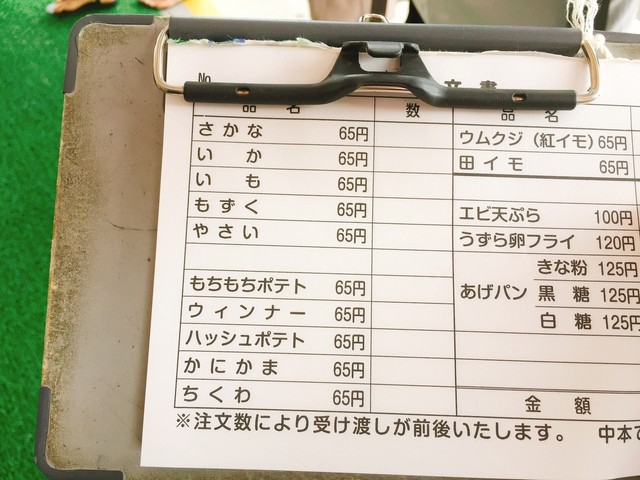 No.
文 書
品 名 数
さかな 65円
いか 65円
いも 65円
もずく 65円
やさい 65円
もちもちポテト 65円
ウィンナー 65円
ハッシュポテト 65円
かにかま 65円
ちくわ 65円
品 名
ウムクジ(紅イモ) 65円
田イモ 65円
エビ天ぷら 100円
うずら卵フライ 120円
あげパン きな粉 125円
黒糖 125円
白糖 125円
金額
※注文数により受け渡しが前後いたします。 中本で